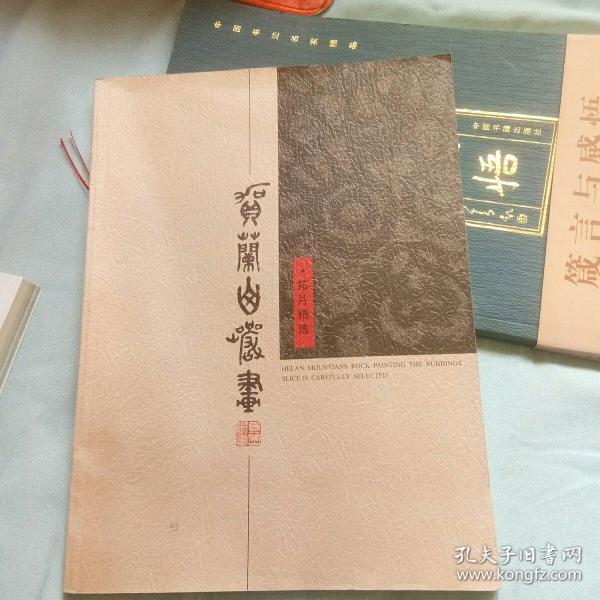 賀蘭山巖畫
·拓片精选
HELAN MOUNTIANS ROCK PAINTING THE RUBBINGS
SLICE IS CAREFULLY SELECTED
中国书迎名家精品
中国书籍出版社
悟
箴言与感悟
孔夫子旧书网
www.kongfz.com